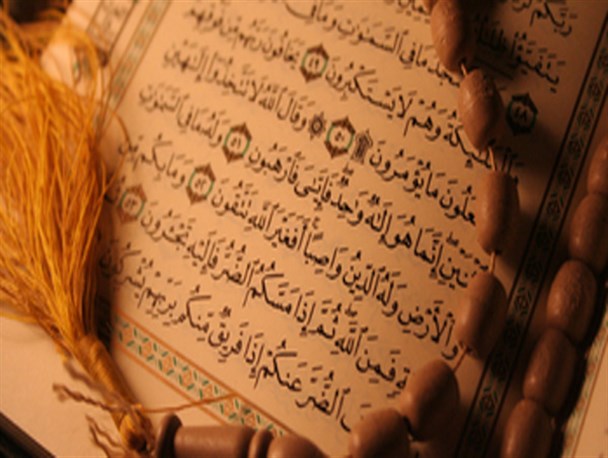 رَبَّكُمْ
يَتَفَيَّؤُا۟ ظِلَٰلُهُۥ
٤٨ يَسْجُدُ مَا فِى ٱلسَّمَٰوَٰتِ وَمَا فِى
ٱلْمَلَٰٓئِكَةُ وَهُمْ لَا يَسْتَكْبِرُونَ ٤٩ يَخَافُونَ رَبَّهُم مِّن فَوْقِهِمْ
عَلُونَ مَا يُؤْمَرُونَ ۩ ٥٠ ۞ وَقَالَ ٱللَّهُ لَا تَتَّخِذُوٓا۟ إِلَٰهَيْنِ
نَيْنِ إِنَّمَا هُوَ إِلَٰهٌ وَٰحِدٌ فَإِيَّٰىَ فَٱرْهَبُونِ ٥١ وَلَهُۥ مَا فِى ٱلسَّمَٰوَٰتِ
وَٱلْأَرْضِ وَلَهُ ٱلدِّينُ وَاصِبًا أَفَغَيْرَ ٱللَّهِ تَتَّقُونَ ٥٢ وَمَا بِكُم مِّن
ةٍ فَمِنَ ٱللَّهِ ثُمَّ إِذَا مَسَّكُمُ ٱلضُّرُّ فَإِلَيْهِ تَجْـَٔرُونَ ٥٣
فَ ٱلضُّرَّ عَنكُمْ إِذَا فَرِيقٌ مِّنكُم بِرَبِّهِمْ يُشْرِكُونَ